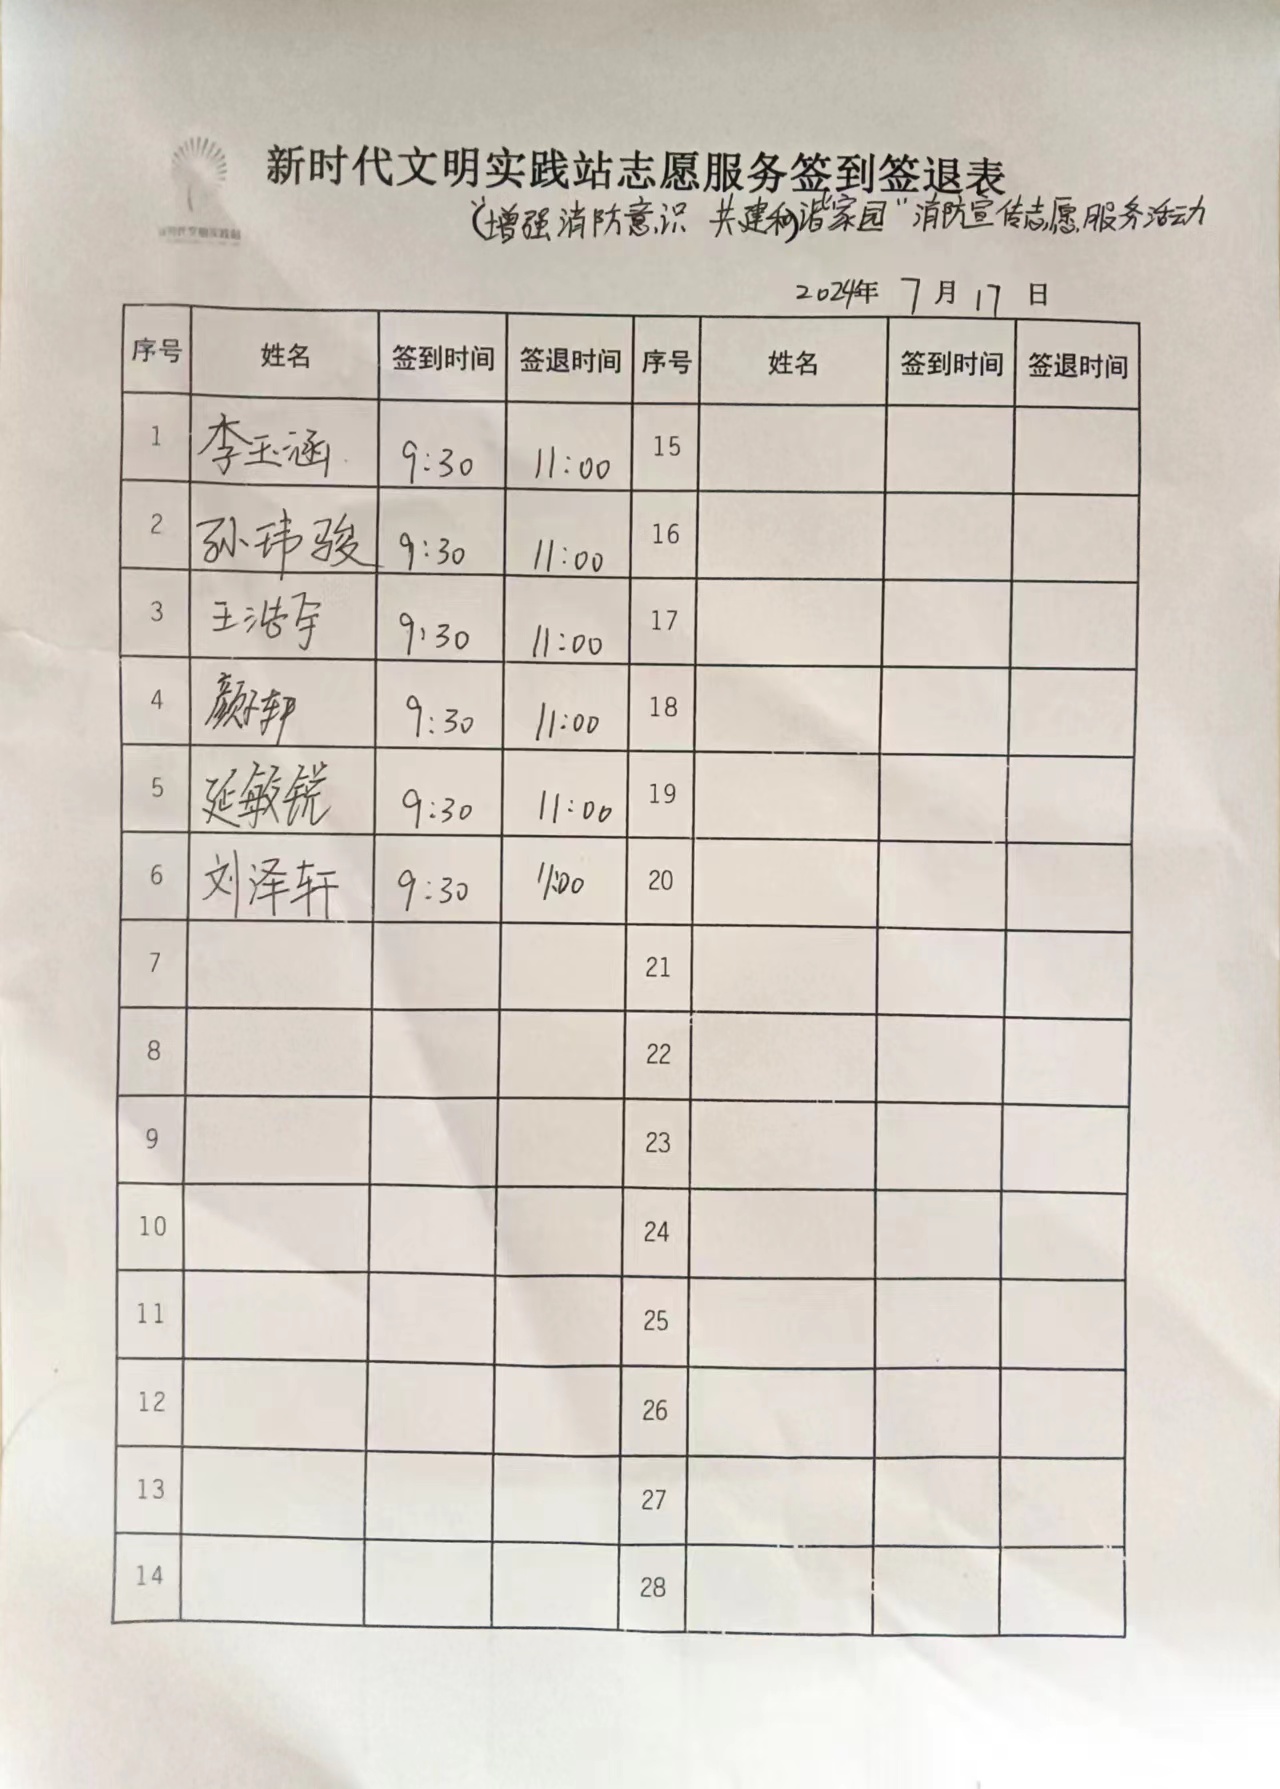 新时代文明实践站志愿服务签到签退表
“增强消防意识 共建和谐家园”消防宣传志愿服务活动
2024年 7月17日
序号 姓名 签到时间 签退时间 序号 姓名 签到时间 签退时间
1 李玉涵 9:30 11:00 15
2 孙玮骏 9:30 11:00 16
3 王浩宇 9:30 11:00 17
4 9:30 11:00 18
5 延敏锐 9:30 11:00 19
6 刘泽轩 9:30 11:00 20
7 21
8 22
9 23
10 24
11 25
12 26
13 27
14 28